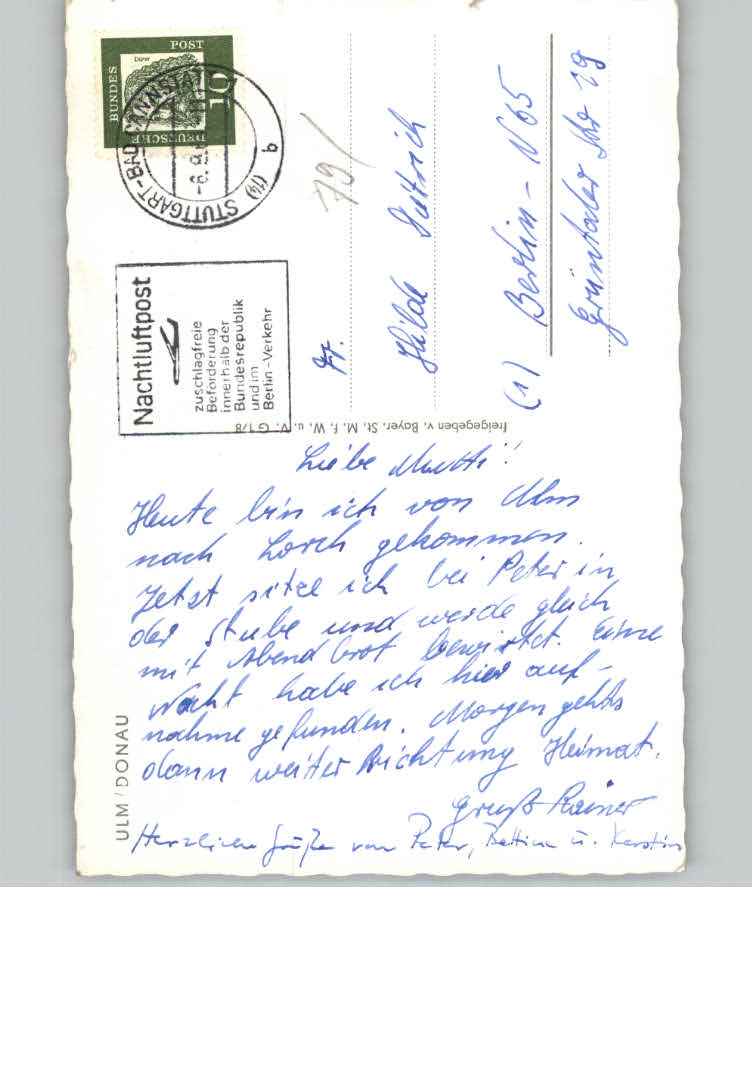 Liebe Mutti!
Heute bin ich von Ulm
nach Lorch gekommen.
Jetzt sitze ich bei Peter in
der Stube und werde gleich
mit Abendbrot bewirtet. Eine
Nacht habe ich hier auf-
nahme gefunden. Morgen gehts
dann weiter Richtung Heimat.
Gruß Rainer
Herzliche Grüße von Peter, Bettina u. Kerstin
ULM/DONAU
Fr.
Hilde Dittrich
(1) Berlin - N 65
Grüntaler Str 19
79/
DEUTSCHE
BUNDES
POST
10
Dürer
(14) STUTTGART-BAD CANNSTATT
b
Nachtluftpost
zuschlagfreie
Beförderung
innerhalb der
Bundesrepublik
und im
Berlin-Verkehr
freigegeben v. Bayer. St. M. f. W. u. V. G 1/8